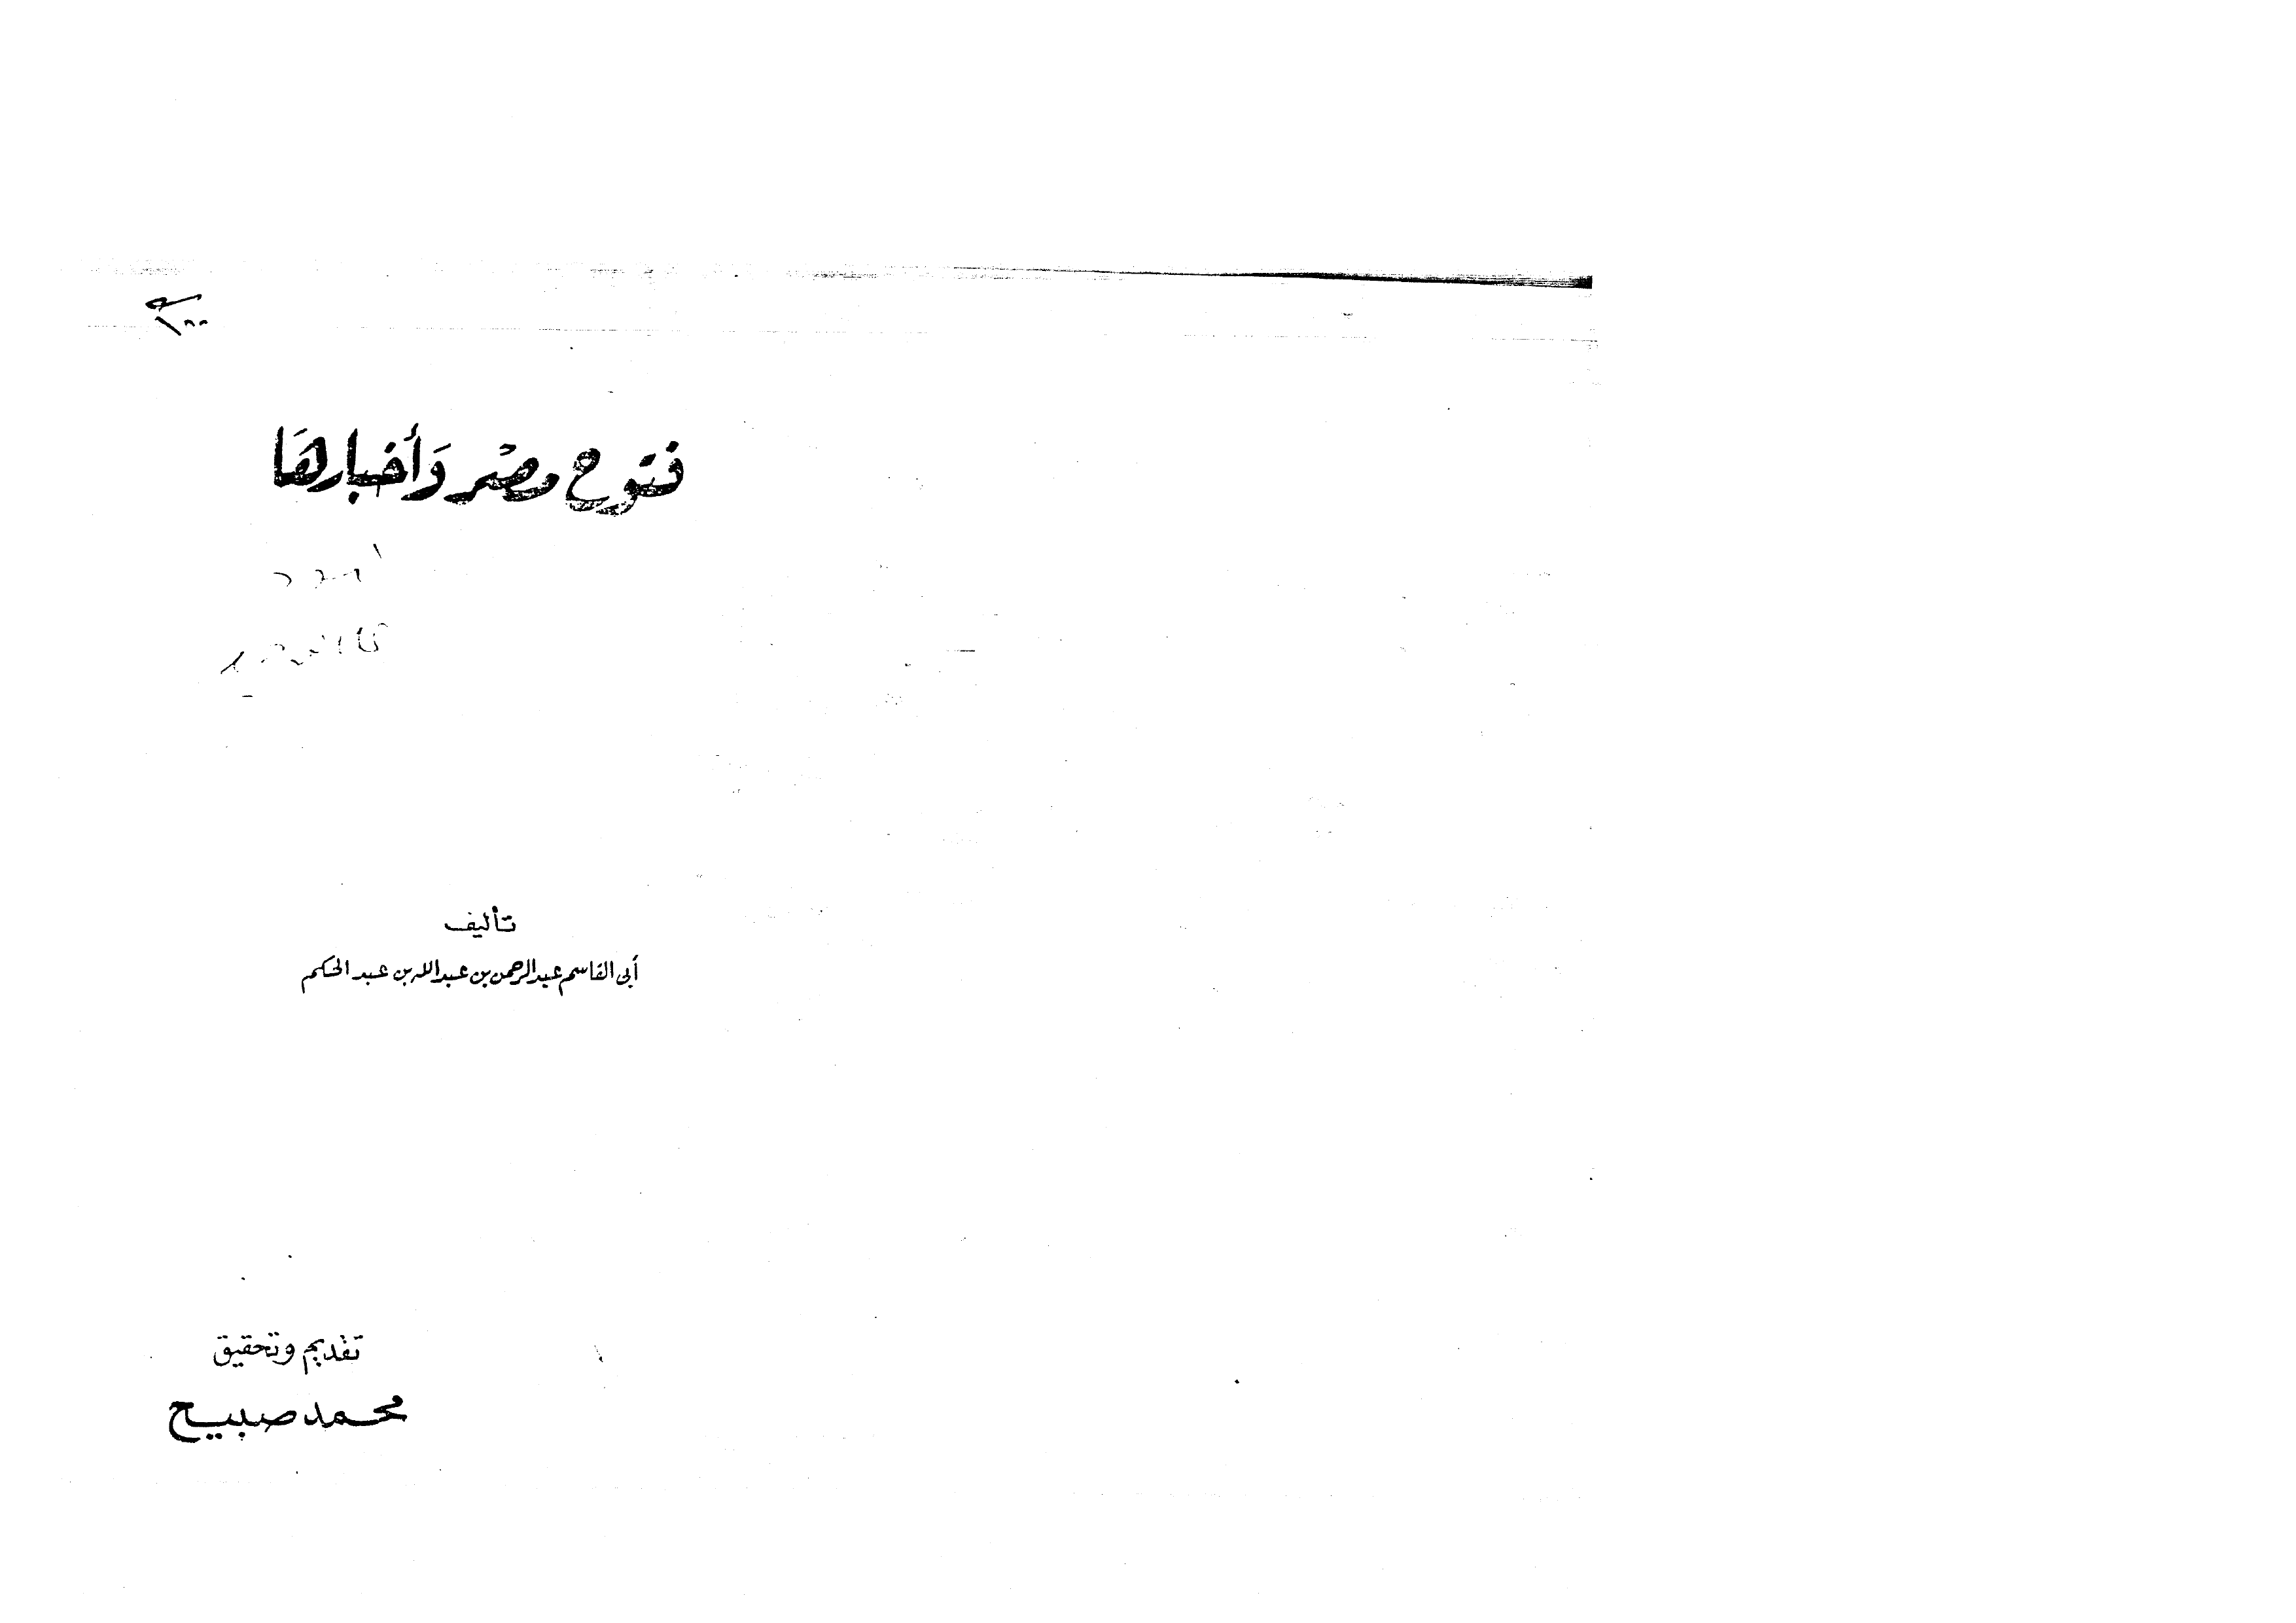 فتوح مصْر وَأخبارهَا
تأليف
أبى القاسم عبد الرحمن بن عبد الله بن عبد الحكم
تقديم وتحقيق
محمد صبيح